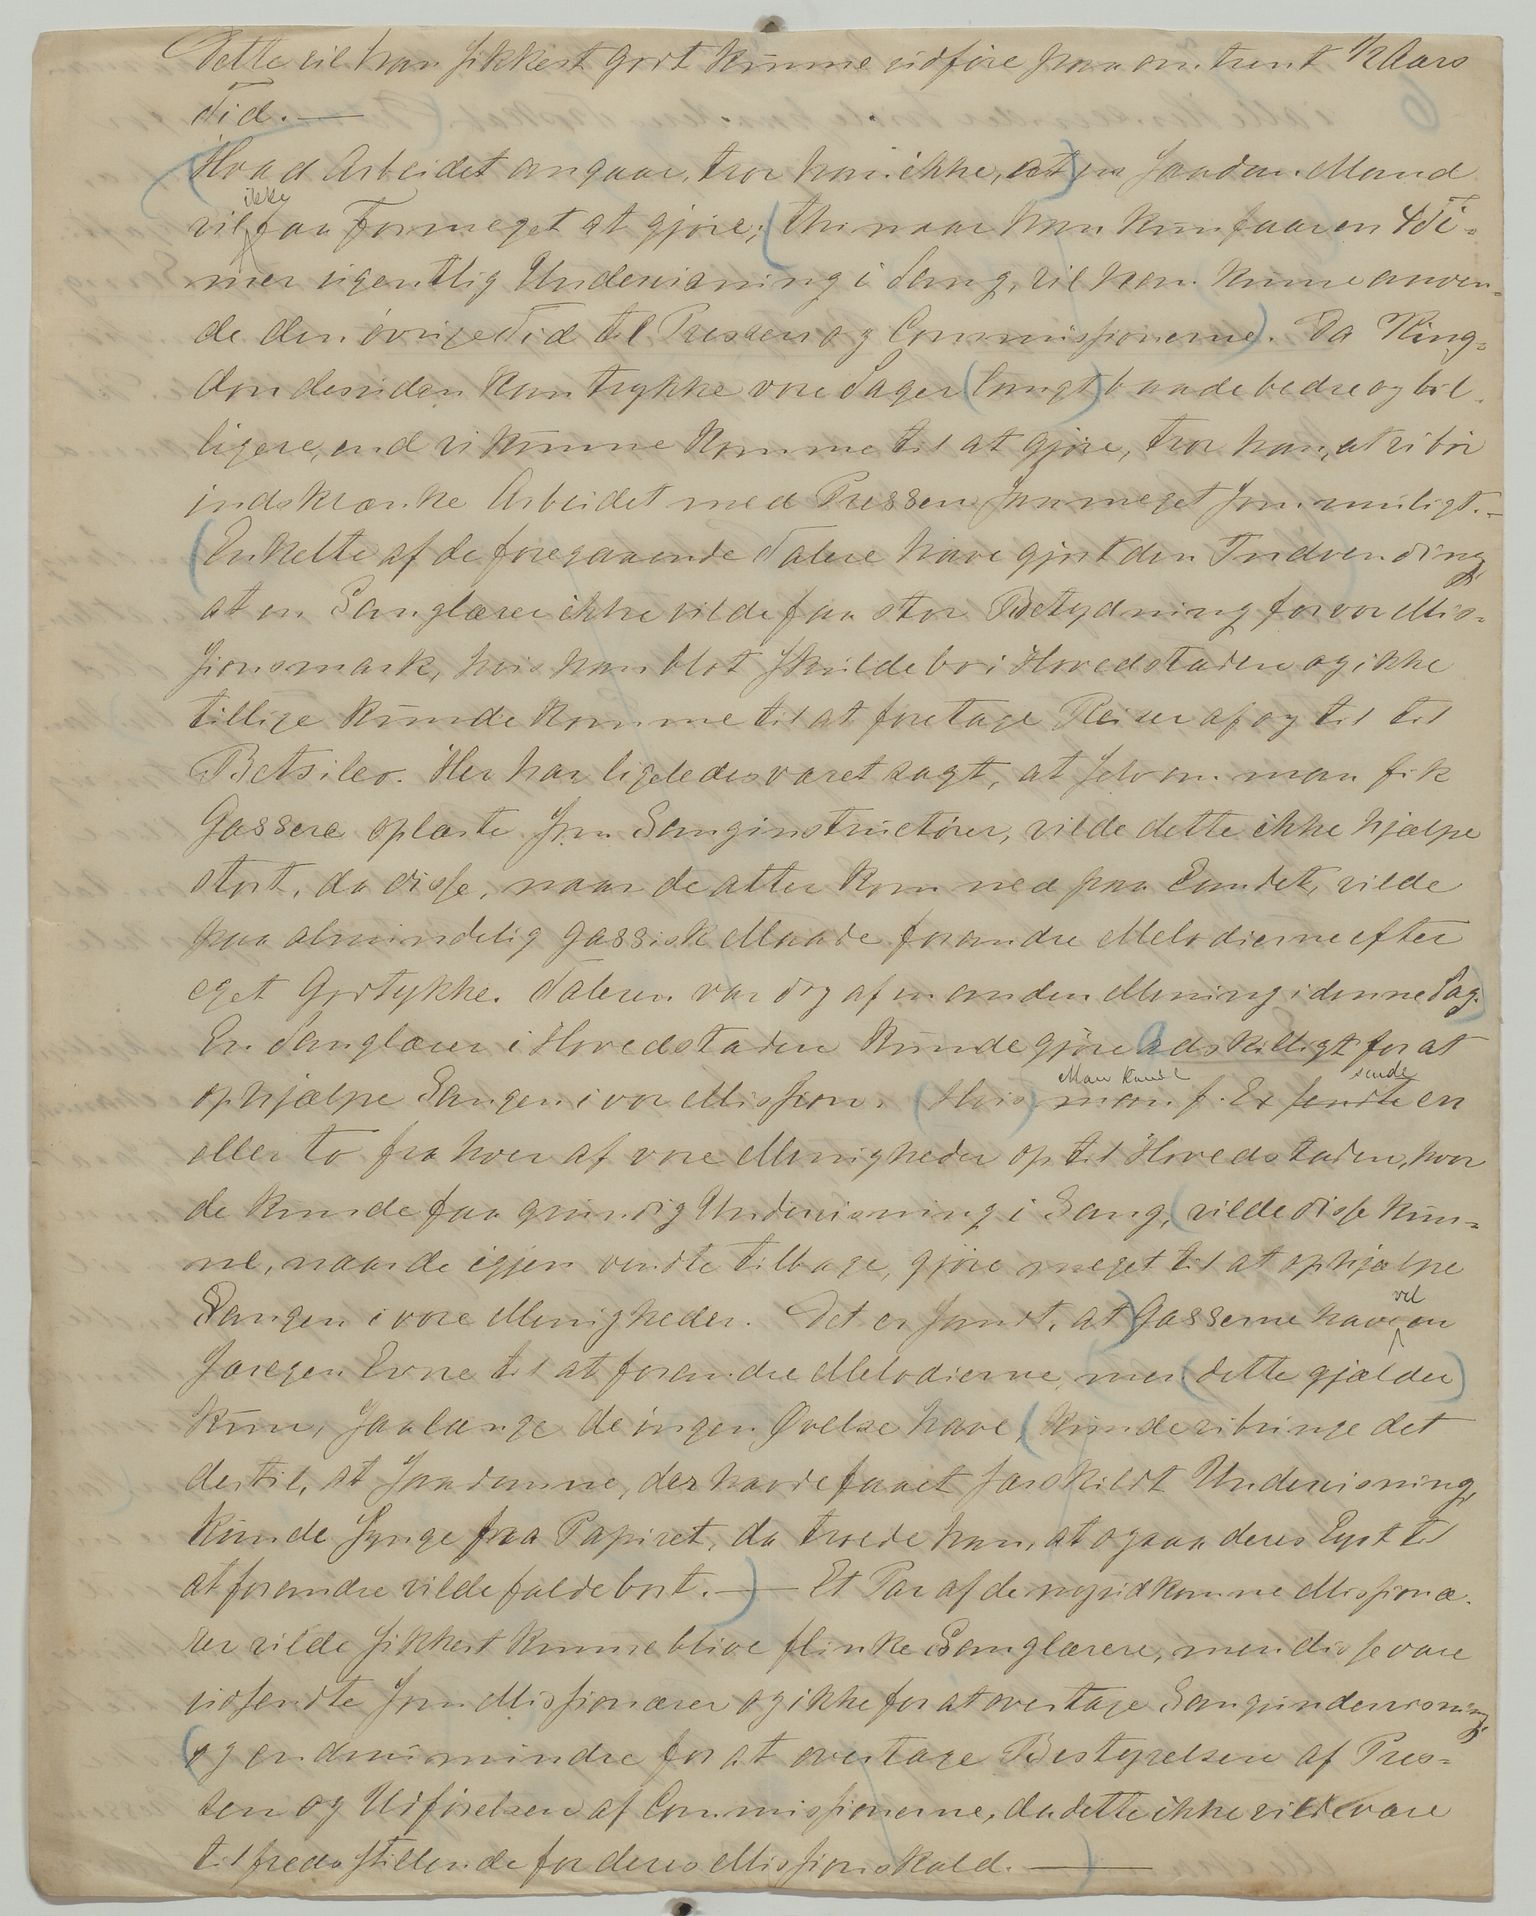 Dette vil han sikkert godt kunne udføre paa omtrent 1/2 Aars
Tid. —
(Hvad Arbeidet angaar, tror han ikke, at) en saadan Mand
vil ikke faa Formeget at gjøre; (thi naar han kun faar en 4 Ti-
mer egentlig Undervisning i Sang, vil han kunne anven-
de den øvrige Tid til Pressen og Commissionerne). Da King-
don desuden kan trykke vore Sager (langt) baade bedre og bil-
ligere, end vi kunne komme til at gjøre, tror han, at vi bør
indskrænke Arbeidet med Pressen saa meget som muligt. -
(Enkelte af de foregaaende Talere have gjort den Indvending,
at en Sanglærer ikke vilde faa stor Betydning for vor Mis-
sionsmark, hvis han blot skulde bo i Hovedstaden og ikke
tillige kunde komme til at foretage Reiser af og til til
Betsileo. Her har ligeledes været sagt, at selv om man fik
Gassere oplærte som Sanginstructører, vilde dette ikke hjælpe
stort, da disse, naar de atter kom ned paa Landet, vilde
paa almindelig gassisk Maade forandre Melodierne efter
eget Godtykke. Taleren var dog af en anden Mening i denne Sag.)
En Sanglærer i Hovedstaden kunde gjøre Adskilligt for at
ophjælpe Sangen i vor Mission. (Hvis) man Man kunde f. Ex sendte sende en
eller to fra hver af vore Menigheder op til Hovedstaden, hvor
de kunde faa grundig Undervisning i Sang, (vilde disse kun-
ne, naar de igjen vendte tilbage, gjøre meget til at ophjælpe
Sangen i vore Menigheder. Det er sandt, at) Gasserne have vel en
særegen Evne til at forandre Melodierne, men (dette gjælder)
kun, saalænge de ingen Øvelse have, (kunde vi bringe det
dertil, at saadanne, der havde faaet særskildt Undervisning,
kunde synge fra Papiret, da troede han, at ogsaa deres Lyst til
at forandre vilde falde bort. —) — Et Par af de nyudkomne Missionæ-
rer vilde sikkert kunne blive flinke Sanglærere, men disse vare
udsendte som Missionærer og ikke for at overtage Sangundervisning,
(og endnu mindre for at overtage Bestyrelsen af Pres-
sen og Udførelsen af Commissionerne, da dette ikke vilde være
tilfredsstillende for deres Missionskald. —)—